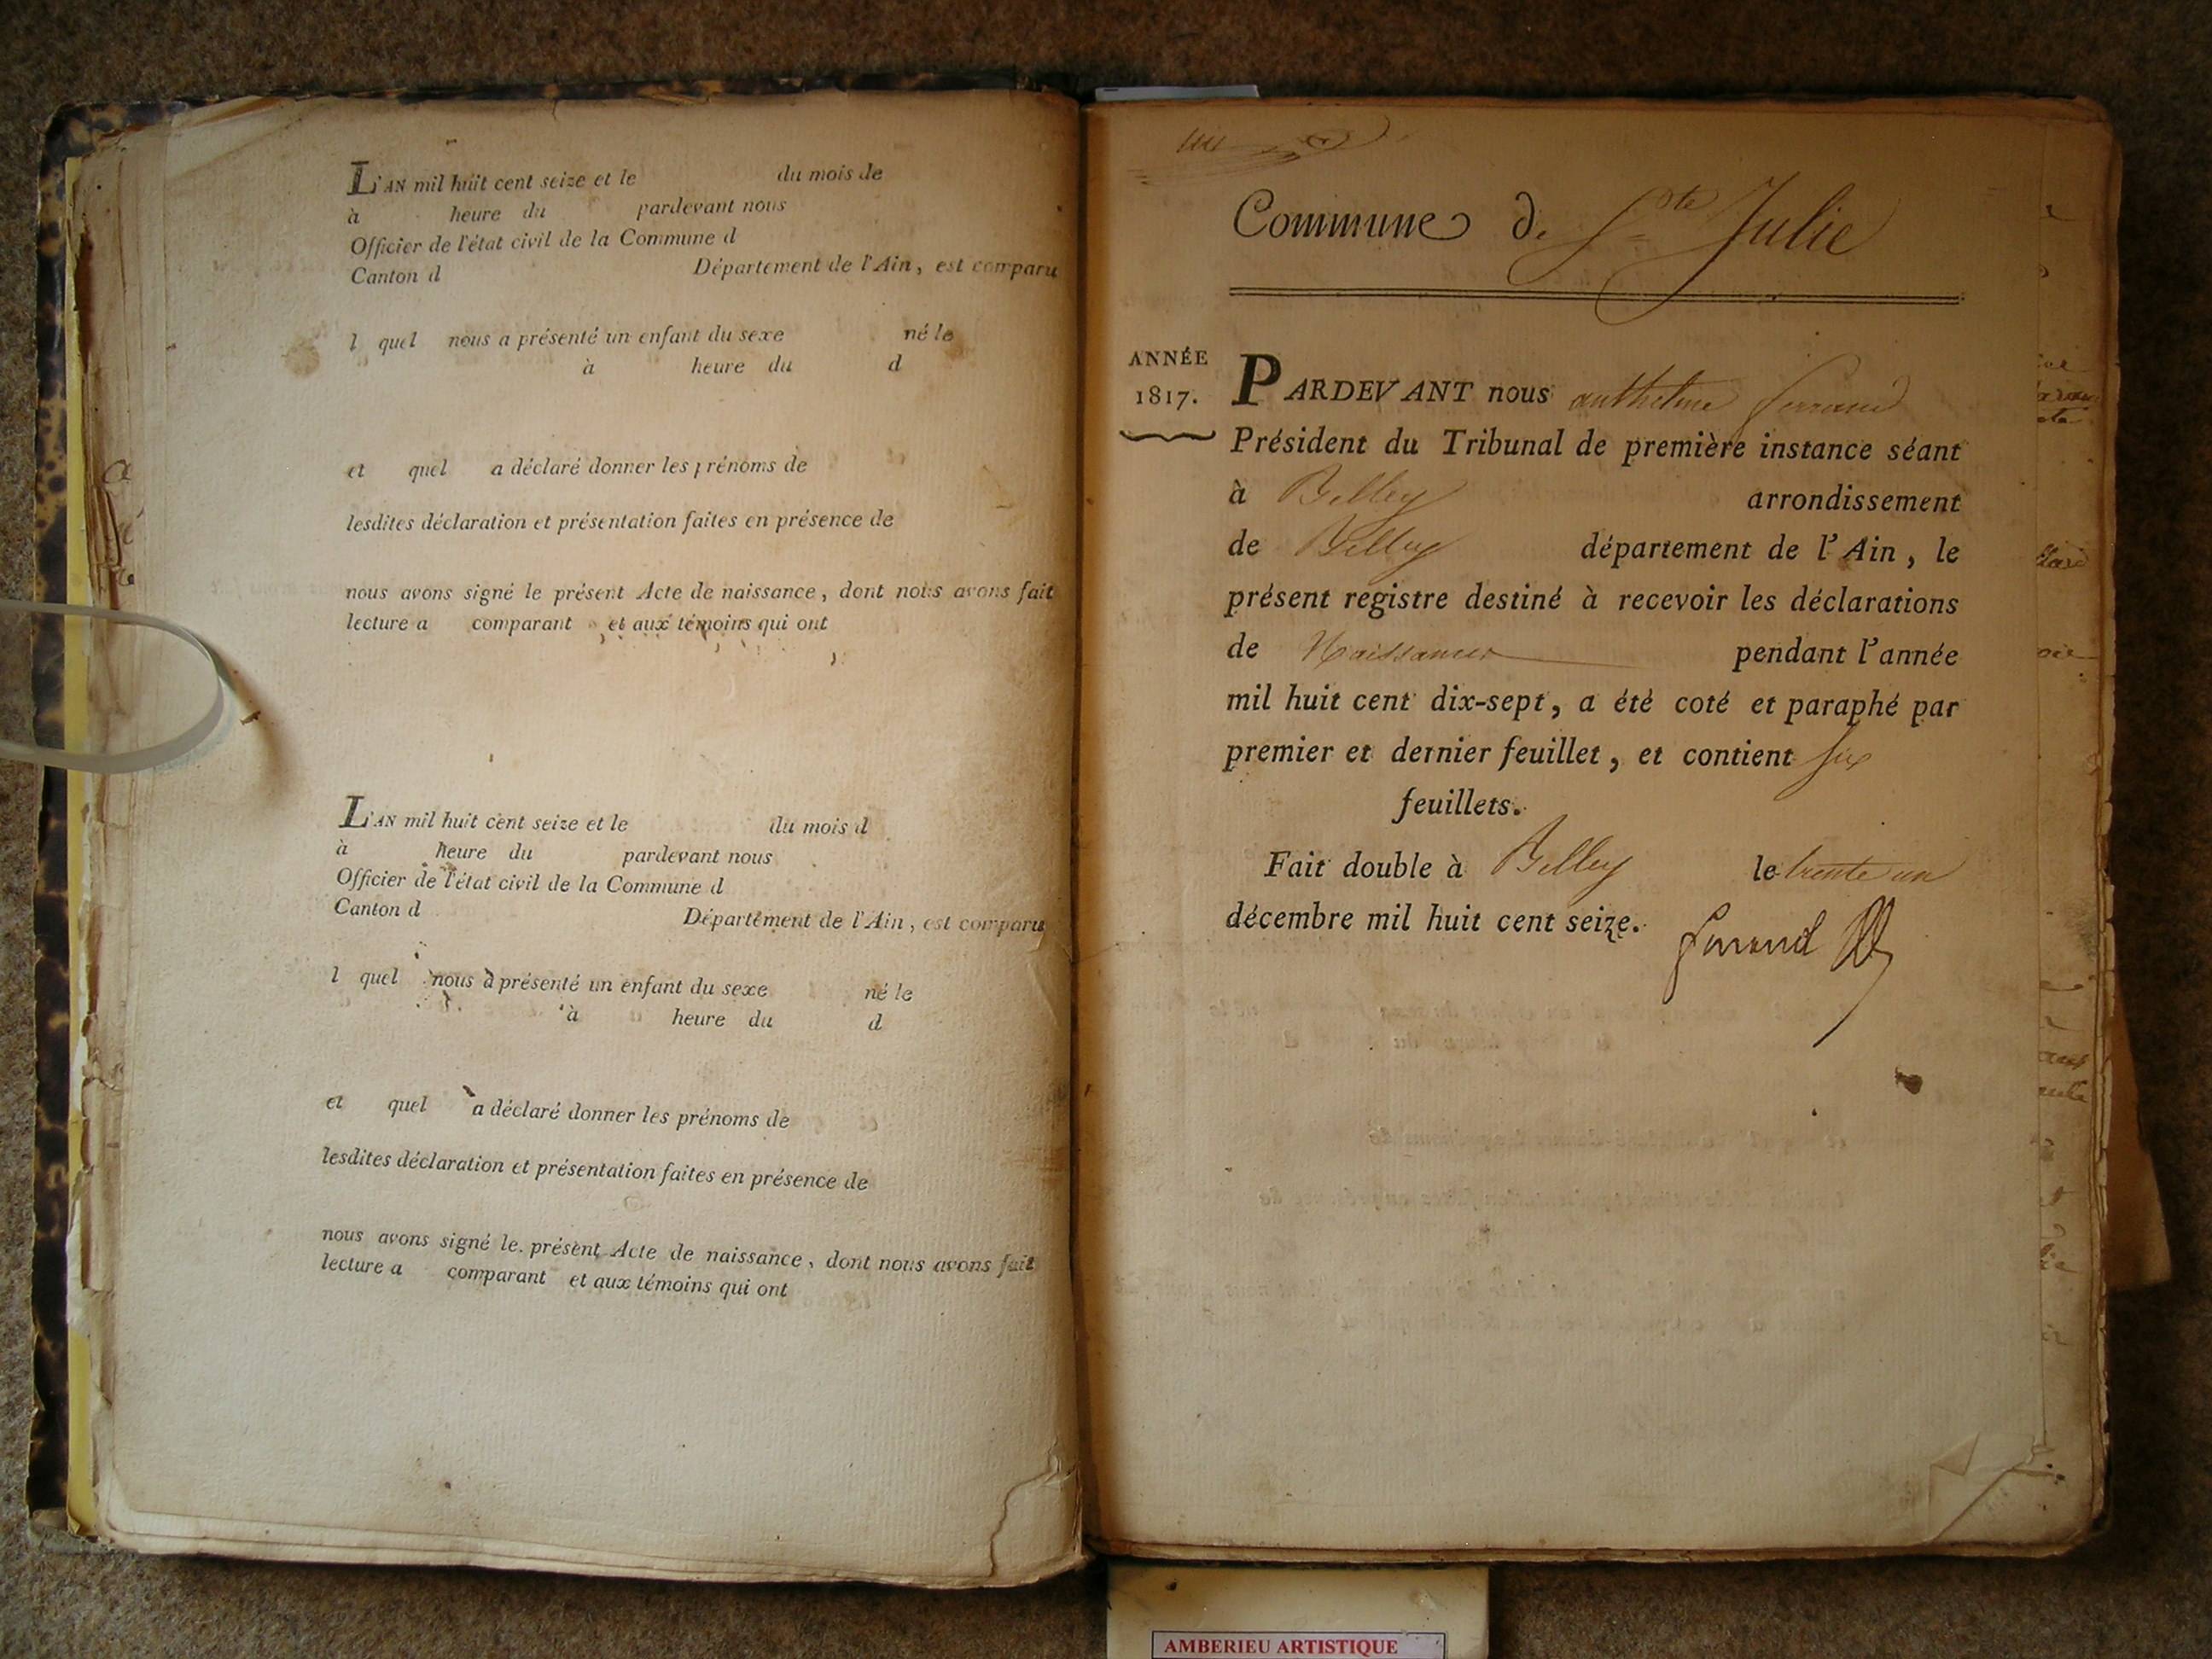 L'AN mil huit cent seize et le du mois de
à heure du pardevant nous
Officier de l'état civil de la Commune d
Canton d Département de l'Ain, est comparu
l quel nous a présenté un enfant du sexe né le
à heure du d
et quel a déclaré donner les prénoms de
lesdites déclaration et présentation faites en présence de
nous avons signé le présent Acte de naissance, dont nous avons fait
lecture a comparant et aux témoins qui ont
L'AN mil huit cent seize et le du mois d
à heure du pardevant nous
Officier de l'état civil de la Commune d
Canton d Département de l'Ain, est comparu
l quel nous a présenté un enfant du sexe né le
à heure du d
et quel a déclaré donner les prénoms de
lesdites déclaration et présentation faites en présence de
nous avons signé le présent Acte de naissance, dont nous avons fait
lecture a comparant et aux témoins qui ont
Commune de Ste Julie
ANNÉE
1817.
PARDEVANT nous anthelme ferrand
Président du Tribunal de première instance séant
à Belley arrondissement
de Belley département de l'Ain, le
présent registre destiné à recevoir les déclarations
de Naissances pendant l'année
mil huit cent dix-sept, a été coté et paraphé par
premier et dernier feuillet, et contient six
feuillets.
Fait double à Belley le trente un
décembre mil huit cent seize.
ferrand
AMBERIEU ARTISTIQUE